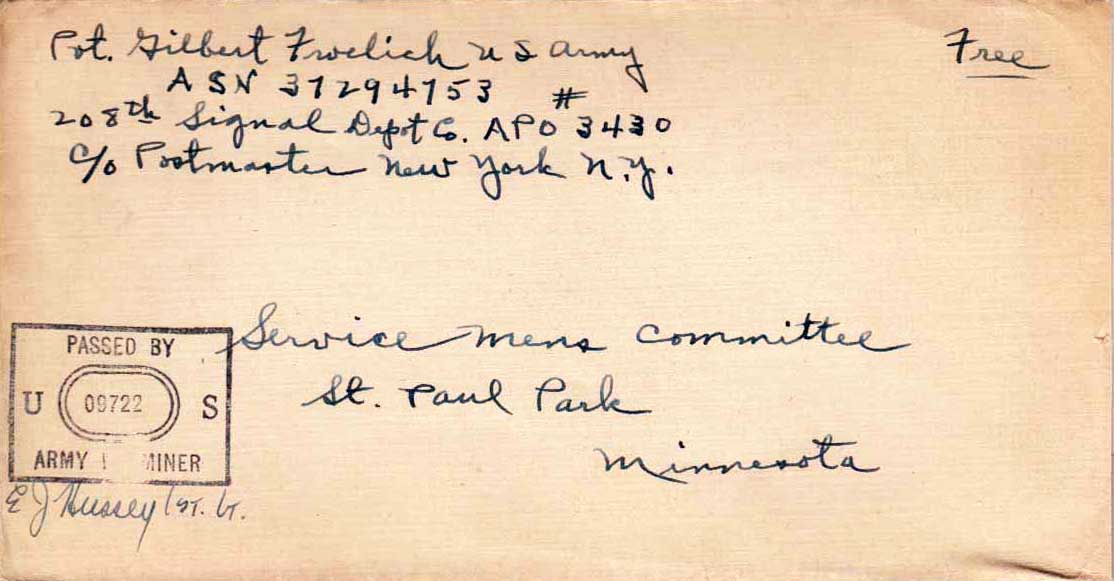 Pvt. Gilbert Froelich U S Army
Free
ASN 37294753
208th Signal Depot Co. APO # 3430
c/o Postmaster New York N.Y.
Service mens committee
St. Paul Park
Minnesota
PASSED BY
U 09722 S
ARMY MINER
E J Hussey 1ST. LT.